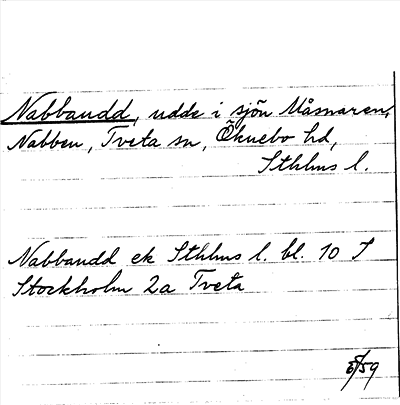 Nabbaudd, udde i sjön Måsnaren,
Nabben, Tveta sn, Öknebo hd,
Sthlms l.
Nabbaudd ek Sthlms l. bl. 10 S
Stockholm 2a Tveta
/59